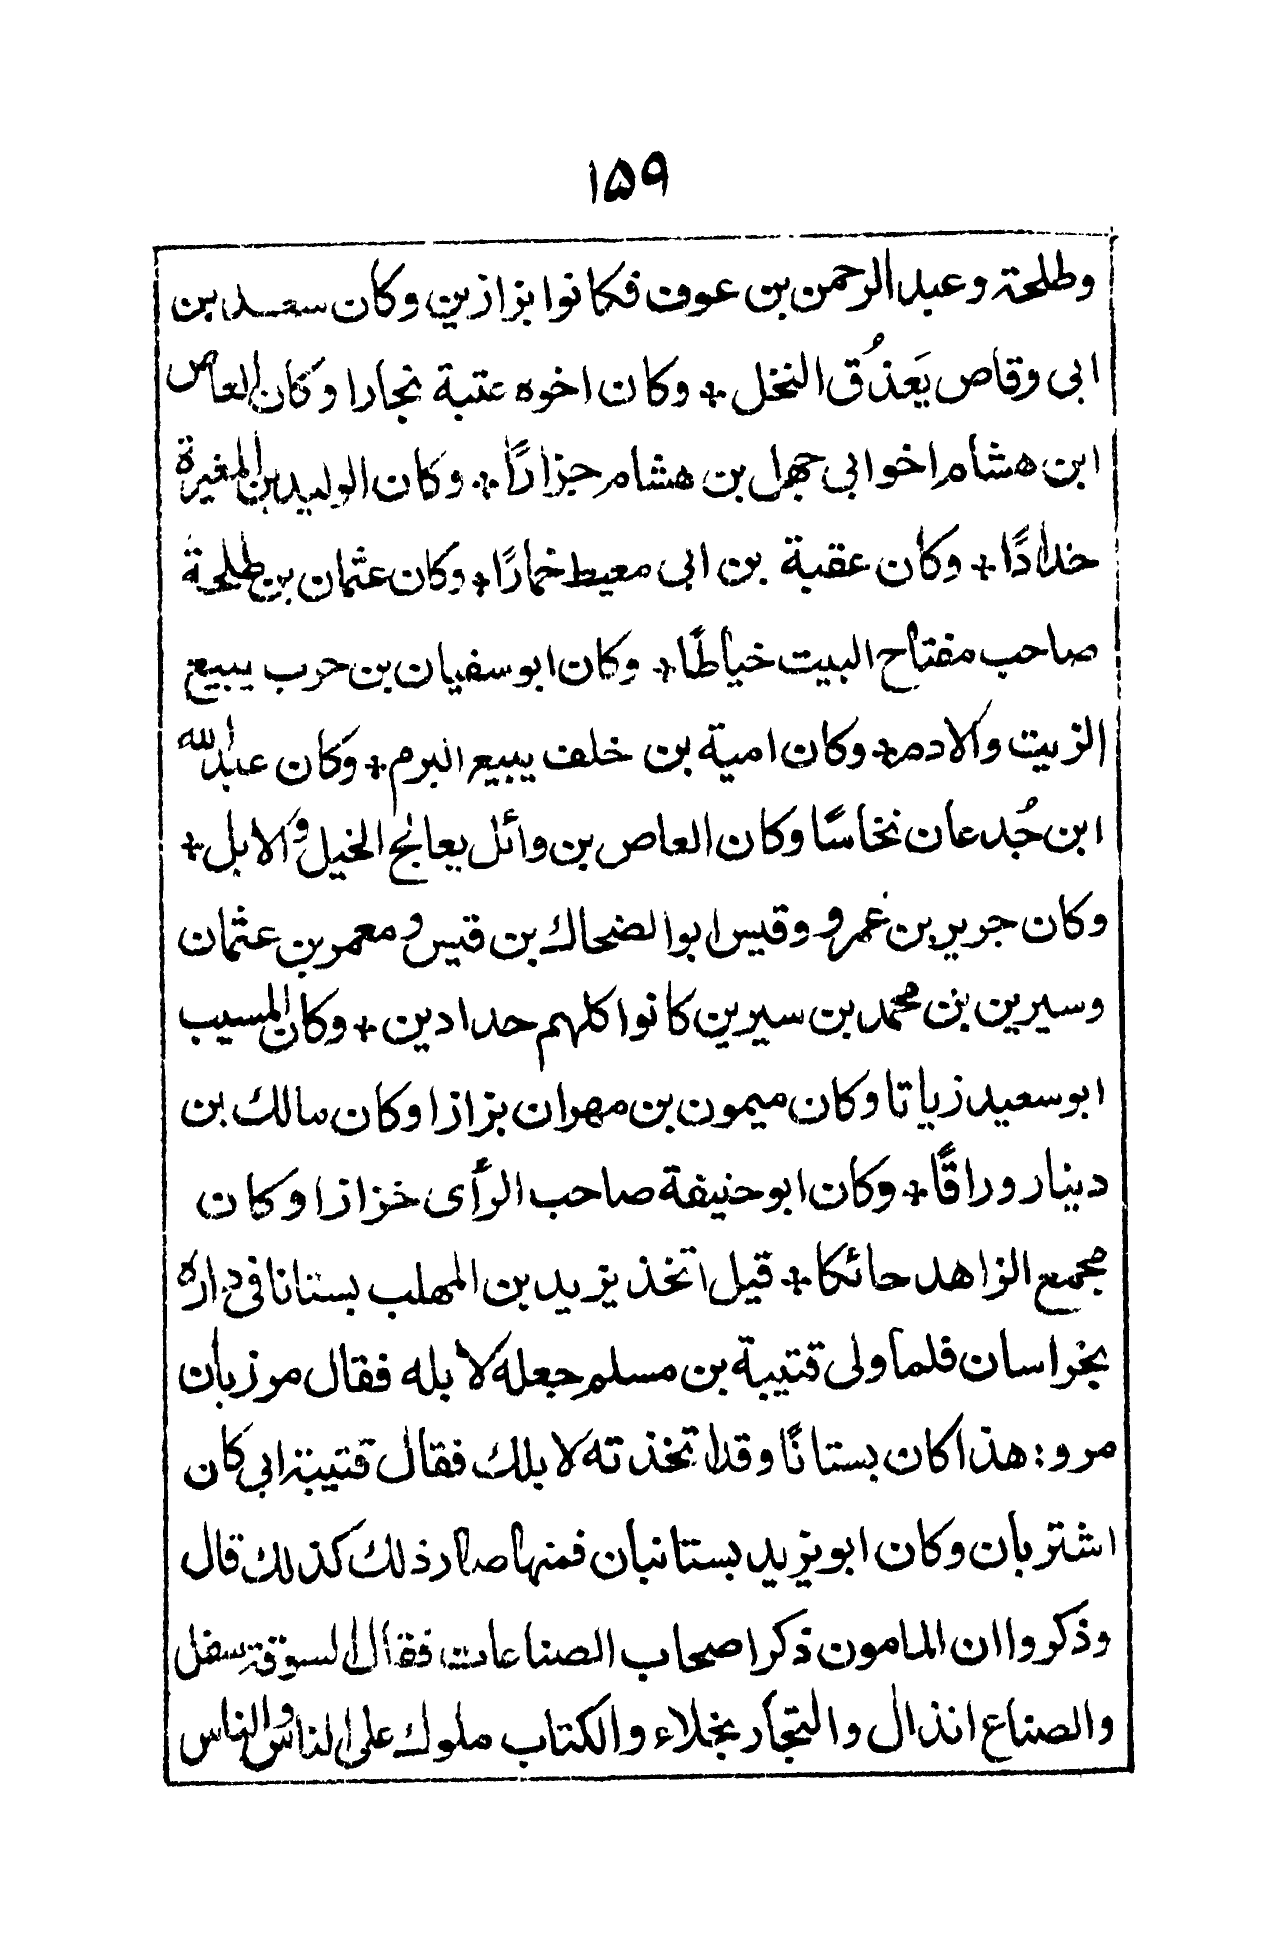 ۱۵۹
وطلحة وعبد الرحمن بن عوف فكانوا بزازين وكان سعد بن
ابى وقاص يَعذُق النخل + وكان اخوه عتبة نجارا وكان العاص
ابن هشام اخو ابى جهل بن هشام جزارًا + وكان الوليد بن المغيرة
خدادًا + وكان عقبة بن ابى معيط خمارًا + وكان عثمان بن طلحة
صاحب مفتاح البيت خياطًا + وكان ابو سفيان بن حرب يبيع
الزيت والادم + وكان امية بن خلف يبيع البرم + وكان عبد الله
ابن جُدعان نخاسًا وكان العاص بن وائل يعالج الخيل والابل +
وكان جرير بن عمرو وقيس ابو الضحاك بن قيس ومعمر بن عثمان
وسيرين بن محمد بن سيرين كانوا كلهم حدادين + وكان المسيب
ابو سعيد زياتا وكان ميمون بن مهران بزازا وكان مالك بن
دينار وراقًا + وكان ابو حنيفة صاحب الرأى خزازا وكان
مجمع الزاهد حائكا + قيل اتخذ يزيد بن المهلب بستانا فى داره
بخراسان فلما ولى قتيبة بن مسلم جعله لابله فقال مرزبان
مرو: هذا كان بستانًا وقد اتخذته لابلك فقال قتيبة ابى كان
اشتربان وكان ابو يزيد بستانبان فمنها صار ذلك كذلك قال
وذكروا ان المامون ذكر اصحاب الصناعات فقال السوقة سفل
والصناع انذال والتجار بخلاء والكتاب ملوك على الناس والناس